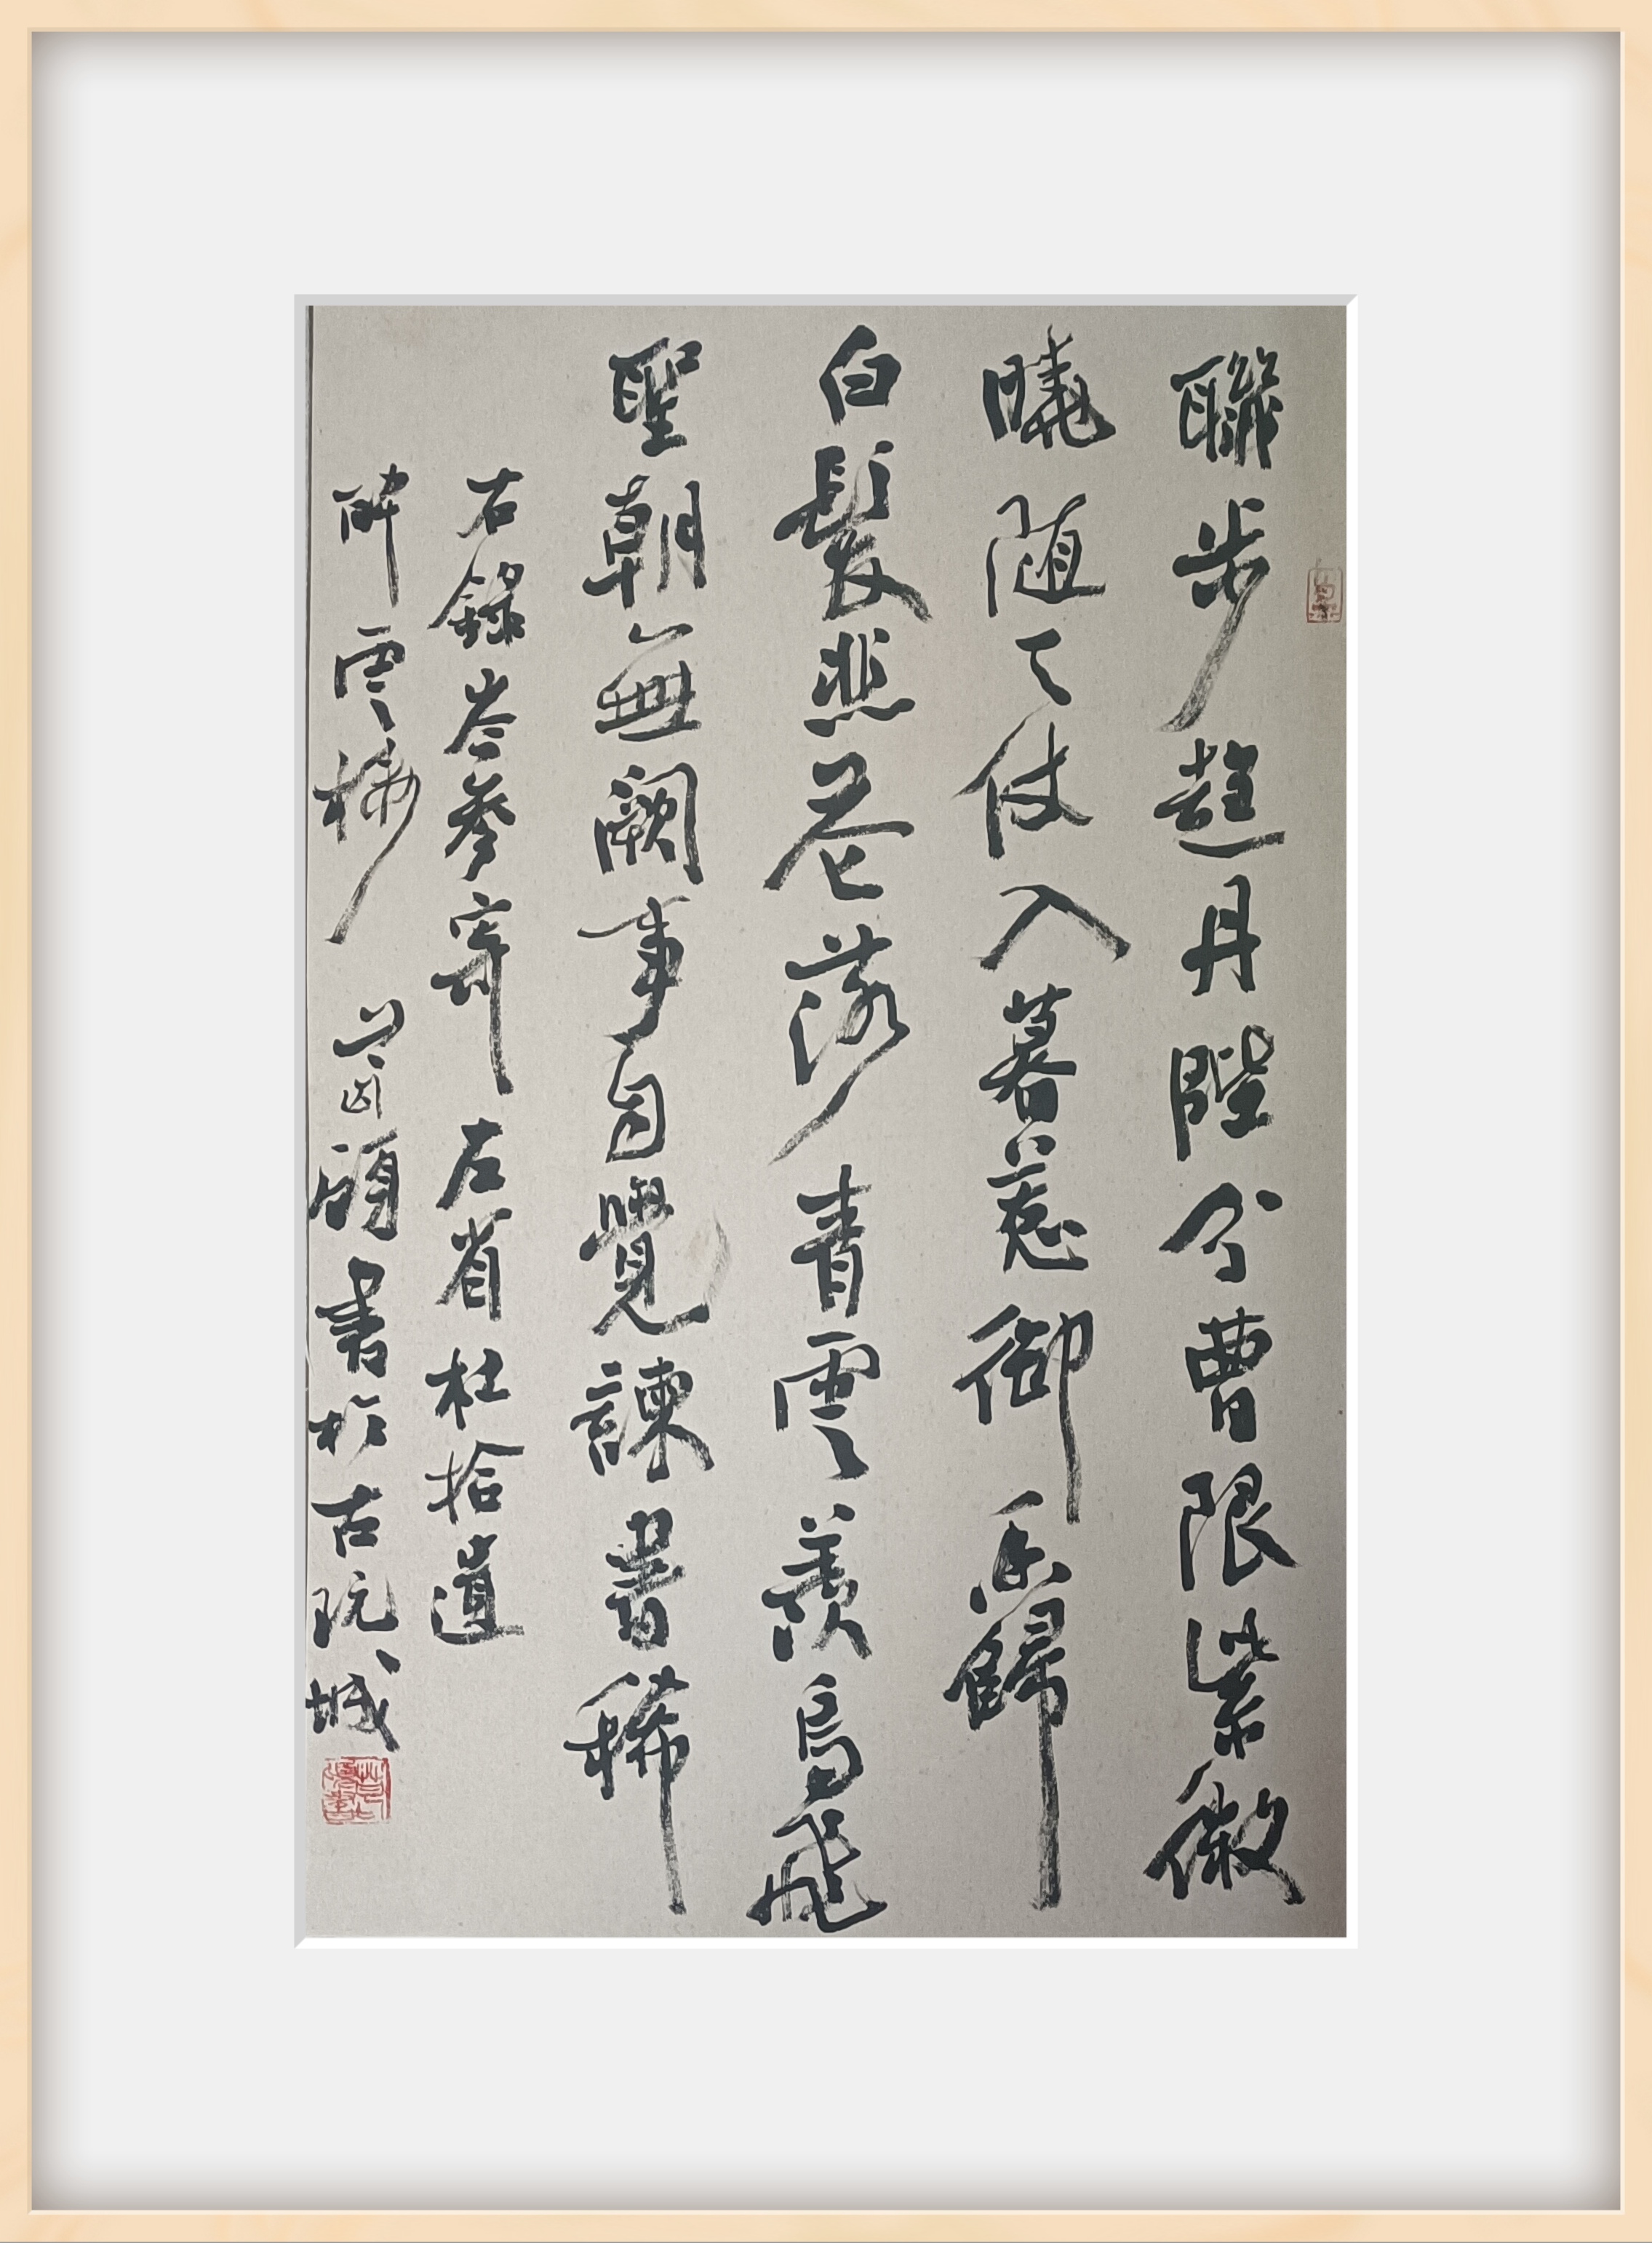 聯步趨丹陛分曹限紫微
曉隨天仗入暮惹御香歸
白髮悲花落青雲羨鳥飛
聖朝無闕事自覺諫書稀
右錄岑參寄左省杜拾遺
醉雲樓
書於古阮城